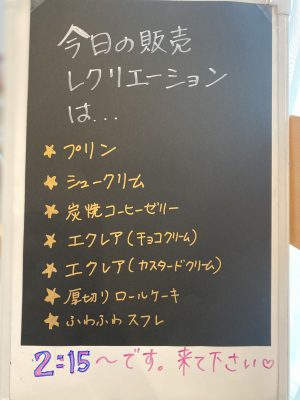 今日の販売
レクリエーション
は...
★プリン
★シュークリーム
★炭焼コーヒーゼリー
★エクレア(チョコクリーム)
★エクレア(カスタードクリーム)
★厚切りロールケーキ
★ふわふわスフレ
2:15〜です。来て下さい♡